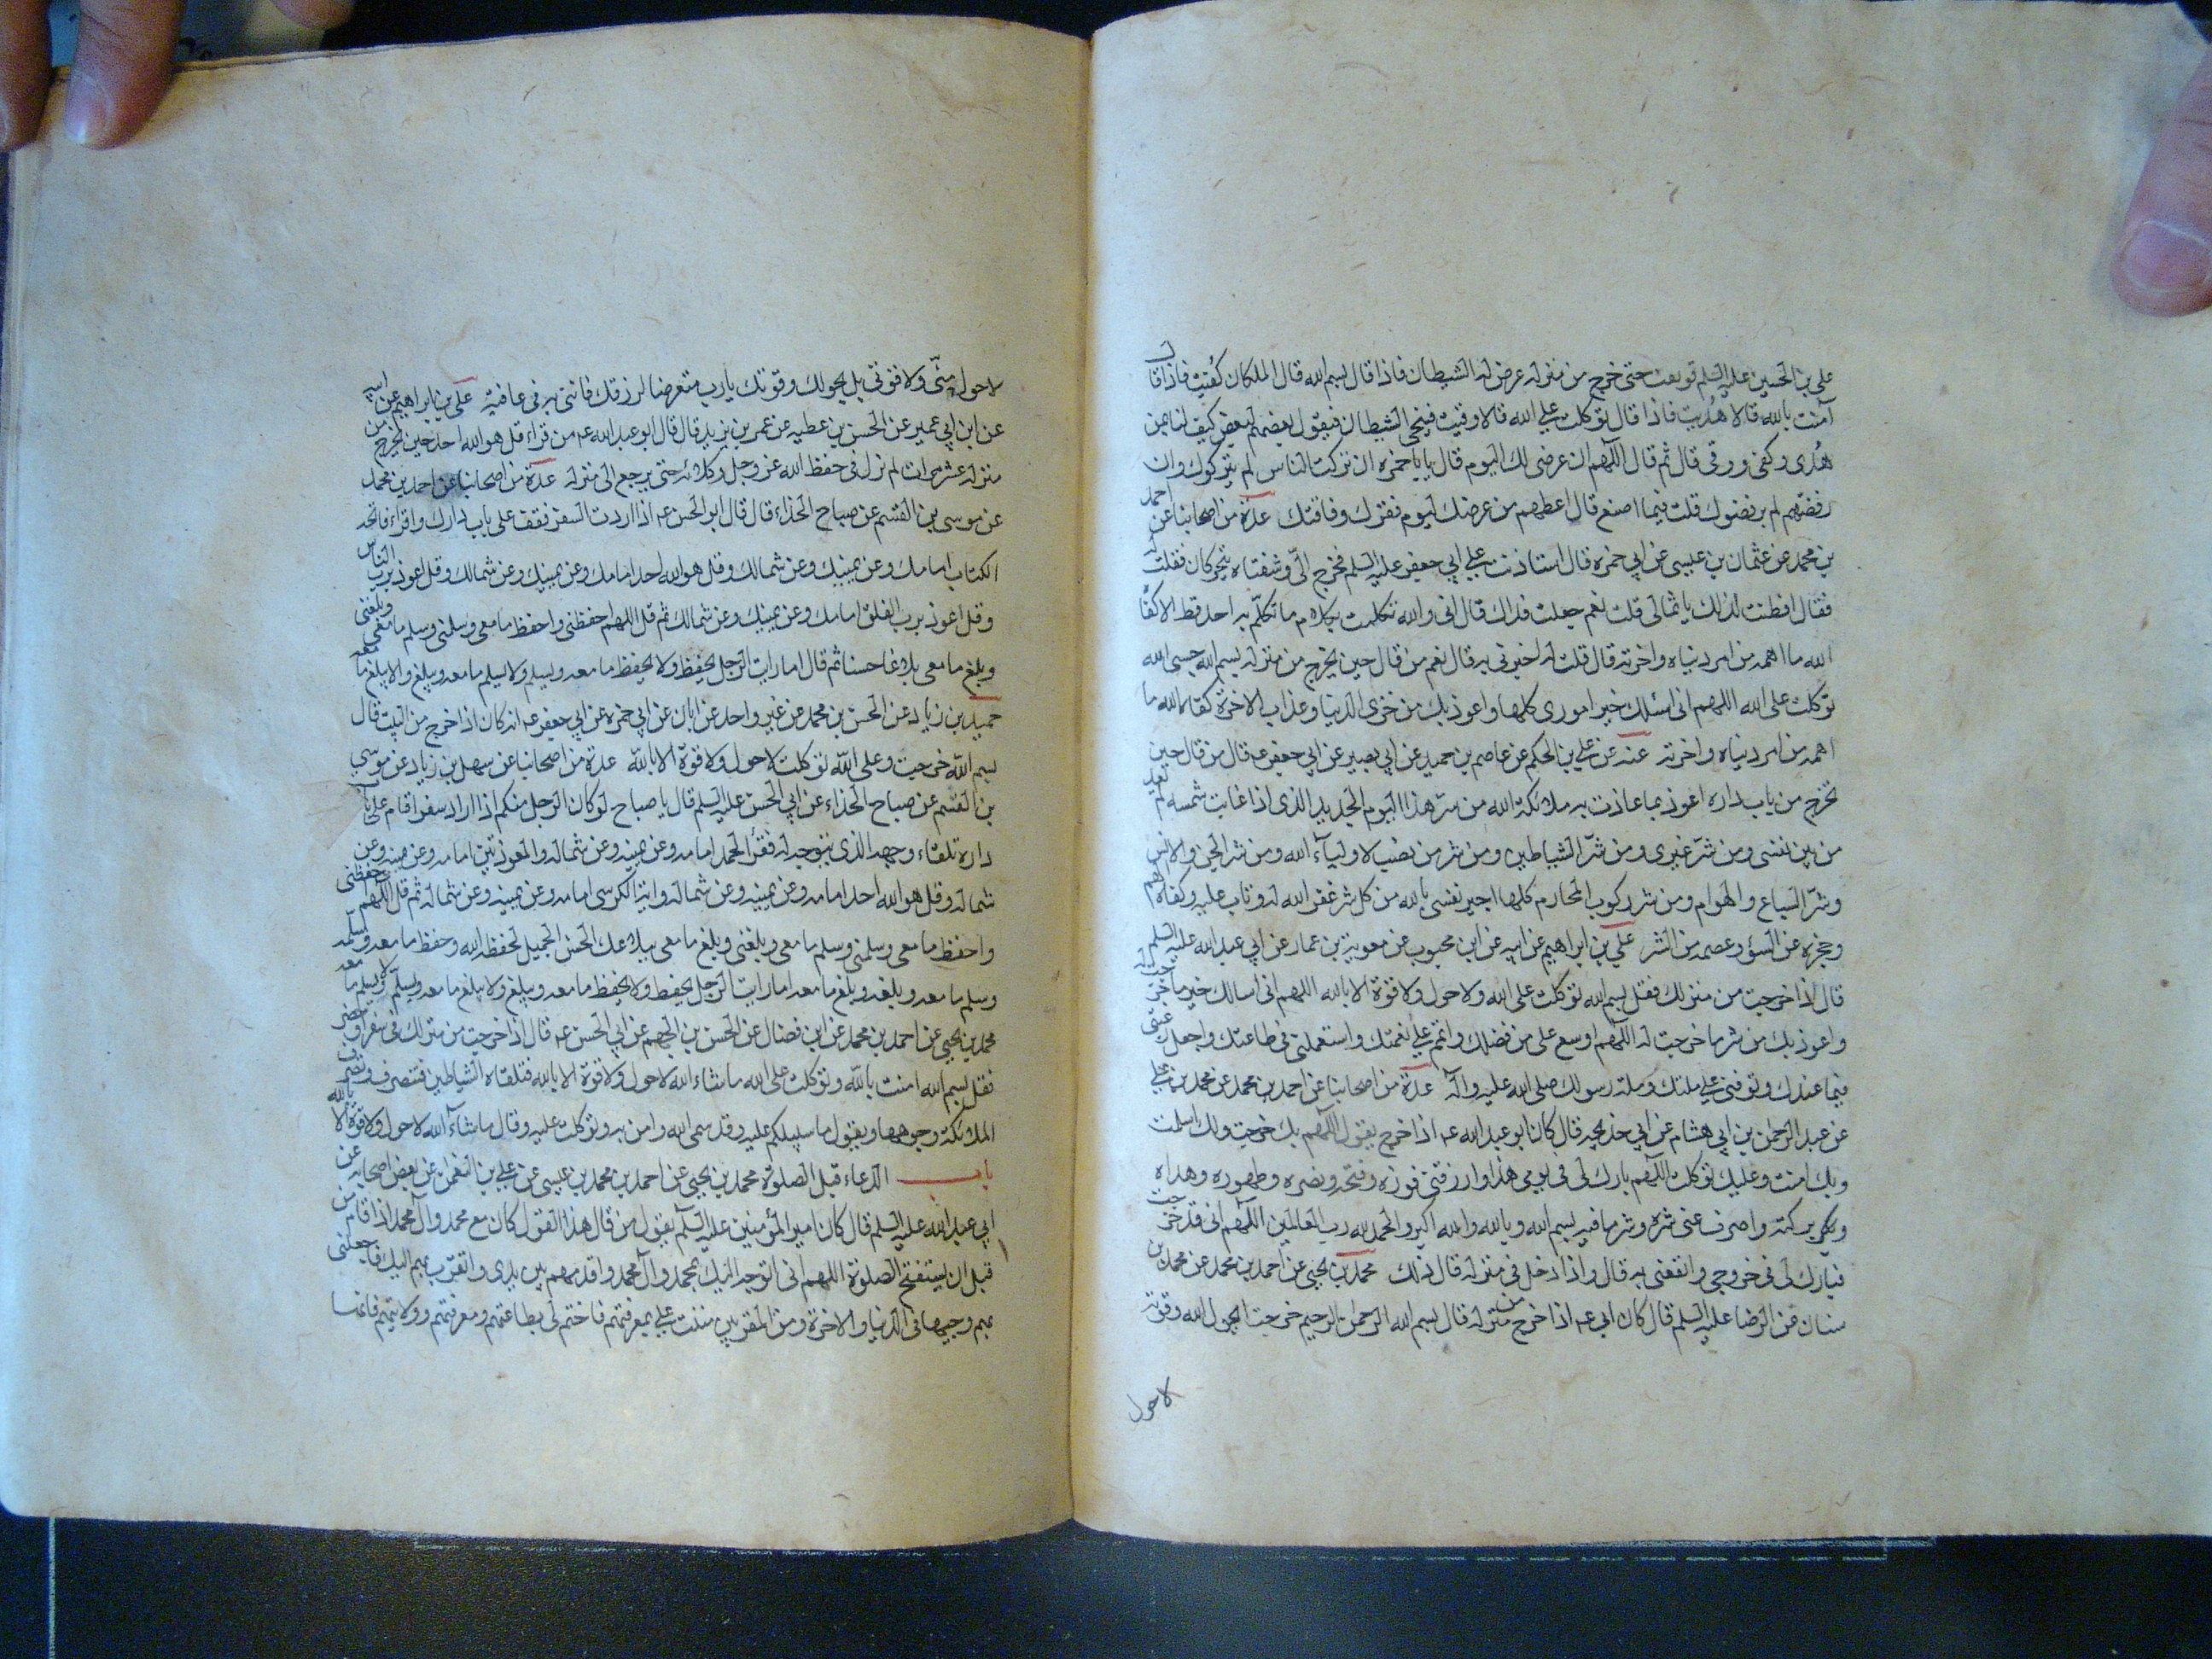 علي بن الحسين عليه السلم قويعت حتى خرج من منزله عرض له الشيطان فاذا قال بسم الله قال الملكان كفيت فاذا قال
آمنت بالله قالا هُديت فاذا قال توكلت علي الله قالا وقيت فيتنحى الشيطان فيقول بعضهم لبعض كيف لنا بمن
هُدى وكفى ووقى قال ثم قال اللّهم ان عرضى لك اليوم قال يا با حمزه ان تركت الناس لم يتركوك وان
رفضتهم لم يرفضوك قلت فما اصنع قال اعطهم من عرضك ليوم فقرك وفاقتك عدة من اصحابنا عن احمد
بن محمد عن عثمان بن عيسى عن ابى حمزه قال استاذنت علي ابي جعفر عليه السلم فخرج الىّ وشفتاه تتحركان فقلت له
فقال افطنت لذلك يا ثمالى قلت نعم جعلت فداك قال انى والله تكلمت بكلام ما تكلّم به احد قط الا كفاه
الله ما اهمه من امر دنياه واخرته قال قلت له اخبرنى به قال نعم من قال حين يخرج من منزله بسم الله حسبى الله
توكلت على الله اللهم انى اسئلك خير امورى كلها واعوذ بك من خزى الدنيا وعذاب الاخرة كفاه الله ما
اهمه من امر دنياه واخرته عنه عن علي بن الحكم عن عاصم بن حميد عن ابي بصير عن ابي جعفر عه قال من قال حين
يخرج من باب داره اعوذ بما عاذت به ملائكة الله من شر هذا اليوم الجديد الذى اذا غابت شمسه لم تعد
من شر نفسى ومن شرّ غيرى ومن شرّ الشياطين ومن شر من نصب لاولياء الله ومن شر الجن والانس
وشرّ السباع والهوام ومن شر ركوب المحارم كلها اجير نفسى بالله من كل شر غفر الله له وتاب عليه وكفاه الهم
وحجزه عن السوء وعصمه من الشر علي بن ابراهيم عن ابيه عن ابن محبوب عن معوية بن عمار عن ابي عبد الله عليه السلم
قال اذا خرجت من منزلك فقل بسم الله توكلت على الله ولا حول ولا قوة الا بالله اللهم انى اسالك خير ما خرجت له
واعوذ بك من شر ما خرجت له اللّهم اوسع على من فضلك واتمم علي نعمتك واستعملنى في طاعتك واجعل رغبتى
فيما عندك وتوفنى علي ملتك وملة رسولك صلى الله عليه وآله عدة من اصحابنا عن احمد بن محمد عن محمد بن علي
عن عبد الرحمن بن ابي هشام عن ابي خديجه قال كان ابو عبد الله عه اذا خرج يقول اللّهم بك خرجت ولك اسلمت
وبك امنت وعليك توكلت اللّهم بارك لى في يومى هذا وارزقنى فوزه وفتحه ونصره وطهوره وهداه
وبركته واصرف عنى شره وشر ما فيه بسم الله وبالله والله اكبر والحمد لله رب العالمين اللّهم انى قد خرجت
فبارك لى في خروجى وانفعنى به قال واذا دخل في منزله قال ذلك محمد بن يحيى عن احمد بن محمد عن محمد بن
سنان عن الرضا عليه السلم قال كان ابى عه اذا خرج من منزله قال بسم الله الرحمن الرحيم خرجت بحول الله وقوته
لا حول
لا حول منّى ولا قوتى بل بحولك وقوتك يا رب متعرضا لرزقك فاتنى به في عافية علي بن ابراهيم عن ابيه
عن ابن ابي عمير عن الحسن بن عطيه عن عمر بن يزيد قال قال ابو عبد الله عه من قراء قل هو الله احد حين يخرج من
منزله عشر مرات لم يزل في حفظ الله عز وجل وكلائه حتى يرجع الى منزله عدة من اصحابنا عن احمد بن محمد
عن موسى بن القسم عن صباح الحذاء قال قال ابو الحسن عه اذا اردت السفر فقف على باب دارك واقراء فاتحه
الكتاب امامك وعن يمينك وعن شمالك وقل هو الله احد امامك وعن يمينك وعن شمالك وقل اعوذ برب الناس
وقل اعوذ برب الفلق امامك وعن يمينك وعن شمالك ثم قل اللهم احفظنى واحفظ ما معى وسلمنى وسلم ما معى وبلغنى
وبلغ ما معى بلاغا حسنا ثم قال اما رايت الرجل يحفظ ولا يحفظ ما معه ويسلم ولا يسلم ما معه ويبلغ ولا يبلغ ما معه
حميد بن زياد عن الحسن بن محمد عن غير واحد عن ابان عن ابي حمزه عن ابي جعفر عه انه كان اذا خرج من البيت قال
بسم الله خرجت وعلى الله توكلت لا حول ولا قوة الا بالله عدة من اصحابنا عن سهل بن زياد عن موسى
بن القسم عن صباح الحذاء عن ابي الحسن عليه السلم قال يا صباح لو كان الرجل منكم اذا اراد سفرا قام على باب
داره تلقاء وجهه الذى يتوجه له فقرأ الحمد امامه وعن يمينه وعن شماله والمعوذتين امامه وعن يمينه وعن
شماله وقل هو الله احد امامه وعن يمينه وعن شماله واية الكرسى امامه وعن يمينه وعن شماله ثم قل اللّهم احفظنى
واحفظ ما معى وسلمنى وسلم ما معى وبلغنى وبلغ ما معى ببلاغك الحسن الجميل لحفظه الله وحفظ ما معه وسلّمه
وسلم ما معه وبلغه وبلغ ما معه اما رايت الرجل يحفظ ولا يحفظ ما معه ويبلغ ولا يبلغ ما معه ويسلّم ولا يسلم ما معه
محمد بن يحيى عن احمد بن محمد عن ابن فضال عن الحسن بن الجهم عن ابي الحسن عه قال اذا خرجت من منزلك في سفر او حضر
فقل بسم الله امنت بالله وتوكلت على الله ما شاء الله لا حول ولا قوة الا بالله فتلقاه الشياطين فتنصرف وتضرب
الملائكة وجوهها ويقول ما سبيلكم عليه وقد سمى الله وامن به وتوكلت عليه وقال ما شآء الله لا حول ولا قوة الا بالله
باب الدعاء قبل الصلوة محمد بن يحيى عن احمد بن محمد بن عيسى عن علي بن النعمن عن بعض اصحابه عن
ابي عبد الله عليه السلم قال كان امير المؤمنين عليه السلم يقول من قال هذا القول كان مع محمد وآل محمد اذا قام من
قبل ان يستفتح الصلوة اللهم انى اتوجه اليك بمحمد وآل محمد واقدمهم بين يدى واتقرّب بهم اليك فاجعلنى
بهم وجيها في الدنيا والاخرة ومن المقربين مننت علي بمعرفتهم فاختم لى بطاعتهم ومعرفتهم وولايتهم فانها